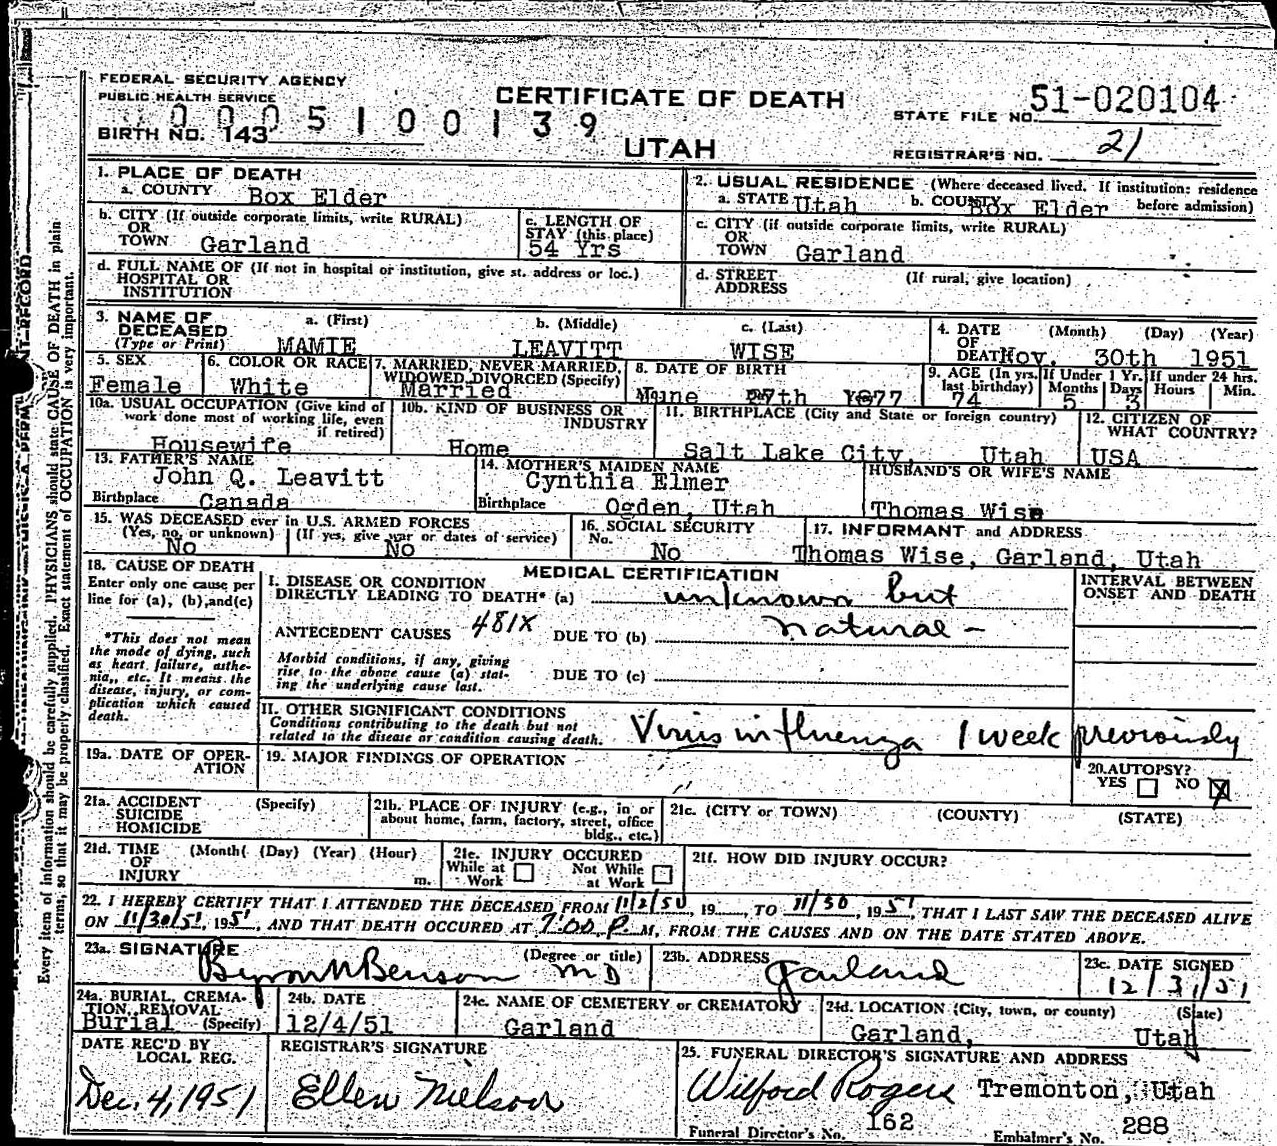 FEDERAL SECURITY AGENCY
PUBLIC HEALTH SERVICE
CERTIFICATE OF DEATH
STATE FILE NO. 51-020104
0005100139
BIRTH NO. 143
UTAH
REGISTRAR'S NO. 21
1. PLACE OF DEATH
a. COUNTY Box Elder
2. USUAL RESIDENCE (Where deceased lived. If institution: residence before admission)
a. STATE Utah b. COUNTY Box Elder
b. CITY (If outside corporate limits, write RURAL)
OR
TOWN Garland
c. LENGTH OF
STAY (this place)
54 Yrs
c. CITY (if outside corporate limits, write RURAL)
OR
TOWN Garland
d. FULL NAME OF (If not in hospital or institution, give st. address or loc.)
HOSPITAL OR
INSTITUTION
d. STREET (If rural, give location)
ADDRESS
3. NAME OF
DECEASED
(Type or Print)
a. (First) b. (Middle) c. (Last)
MAMIE LEAVITT WISE
4. DATE (Month) (Day) (Year)
OF
DEATH Nov. 30th 1951
5. SEX
Female
6. COLOR OR RACE
White
7. MARRIED, NEVER MARRIED,
WIDOWED, DIVORCED (Specify)
Married
8. DATE OF BIRTH
June 27th 1877
9. AGE (In yrs. last birthday)
74
If Under 1 Yr.
Months Days
5 3
If under 24 hrs.
Hours Min.
10a. USUAL OCCUPATION (Give kind of
work done most of working life, even
if retired)
Housewife
10b. KIND OF BUSINESS OR
INDUSTRY
Home
11. BIRTHPLACE (City and State or foreign country)
Salt Lake City, Utah
12. CITIZEN OF
WHAT COUNTRY?
USA
13. FATHER'S NAME
John Q. Leavitt
Birthplace Canada
14. MOTHER'S MAIDEN NAME
Cynthia Elmer
Birthplace Ogden, Utah
HUSBAND'S OR WIFE'S NAME
Thomas Wise
15. WAS DECEASED ever in U.S. ARMED FORCES
(Yes, no, or unknown) (If yes, give war or dates of service)
No No
16. SOCIAL SECURITY
No. No
17. INFORMANT and ADDRESS
Thomas Wise, Garland, Utah
18. CAUSE OF DEATH
Enter only one cause per
line for (a), (b), and (c)
*This does not mean
the mode of dying, such
as heart failure, asthe-
nia,, etc. It means the
disease, injury, or com-
plication which caused
death.
MEDICAL CERTIFICATION
I. DISEASE OR CONDITION
DIRECTLY LEADING TO DEATH* (a) unknown but
ANTECEDENT CAUSES 481X DUE TO (b) natural -
Morbid conditions, if any, giving
rise to the above cause (a) stat-
ing the underlying cause last.
DUE TO (c)
INTERVAL BETWEEN
ONSET AND DEATH
II. OTHER SIGNIFICANT CONDITIONS
Conditions contributing to the death but not
related to the disease or condition causing death.
Virus influenza 1 week previously
19a. DATE OF OPER-
ATION
19. MAJOR FINDINGS OF OPERATION
20. AUTOPSY?
YES NO X
21a. ACCIDENT (Specify)
SUICIDE
HOMICIDE
21b. PLACE OF INJURY (e.g., in or
about home, farm, factory, street, office
bldg., etc.)
21c. (CITY or TOWN) (COUNTY) (STATE)
21d. TIME (Month( (Day) (Year) (Hour)
OF
INJURY m.
21e. INJURY OCCURED
While at Work Not While at Work
21f. HOW DID INJURY OCCUR?
22. I HEREBY CERTIFY THAT I ATTENDED THE DECEASED FROM 11/2/50, 19__, TO 11/30, 1951, THAT I LAST SAW THE DECEASED ALIVE
ON 11/30/51, 1951, AND THAT DEATH OCCURED AT 7:00 P. M, FROM THE CAUSES AND ON THE DATE STATED ABOVE.
23a. SIGNATURE (Degree or title)
Byron N Benson MD
23b. ADDRESS
Garland
23c. DATE SIGNED
12/3/51
24a. BURIAL, CREMA-
TION, REMOVAL
Burial (Specify)
24b. DATE
12/4/51
24c. NAME OF CEMETERY or CREMATORY
Garland
24d. LOCATION (City, town, or county) (State)
Garland, Utah
DATE REC'D BY
LOCAL REG.
Dec. 4, 1951
REGISTRAR'S SIGNATURE
Ellen Nielson
25. FUNERAL DIRECTOR'S SIGNATURE AND ADDRESS
Wilford Rogers Tremonton, Utah
Funeral Director's No. 162 Embalmer's No. 288
Every item of information should be carefully supplied. PHYSICIANS should state CAUSE OF DEATH in plain
terms, so that it may be properly classified. Exact statement of OCCUPATION is very important.